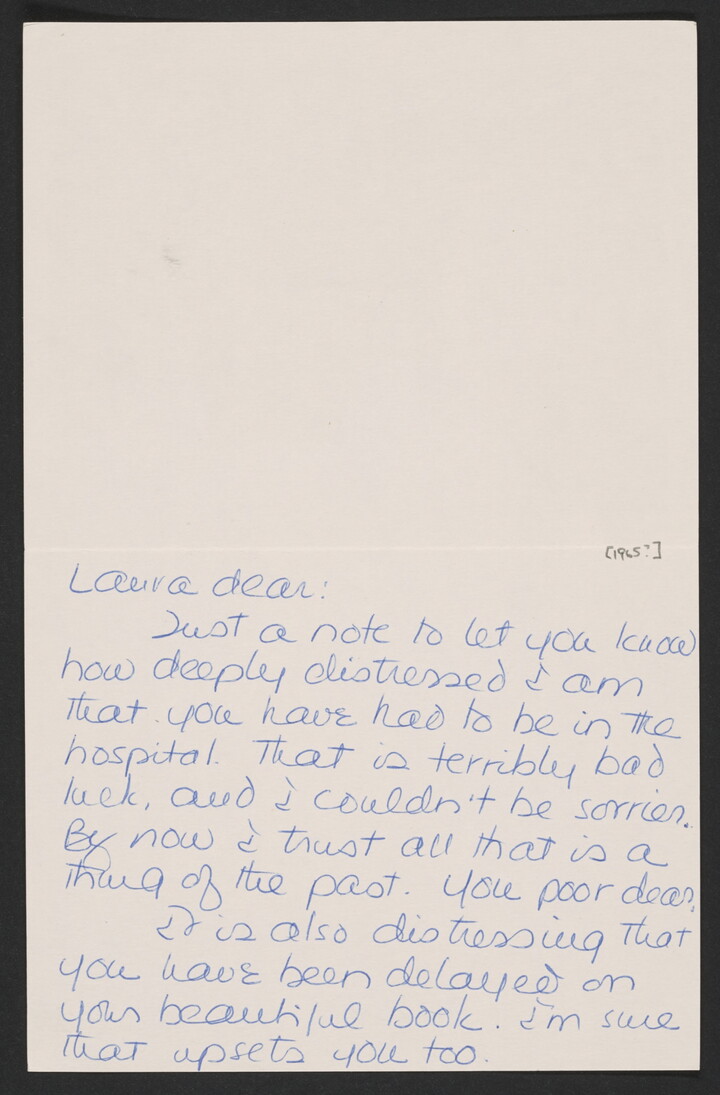 [1965?]
Laura dear:
Just a note to let you know
how deeply distressed i am
that you have had to be in the
hospital. That is terribly bad
luck, and i couldn't be sorrier.
By now i trust all that is a
thing of the past. You poor dear.
It is also distressing that
you have been delayed on
your beautiful book. i'm sure
that upsets you too.